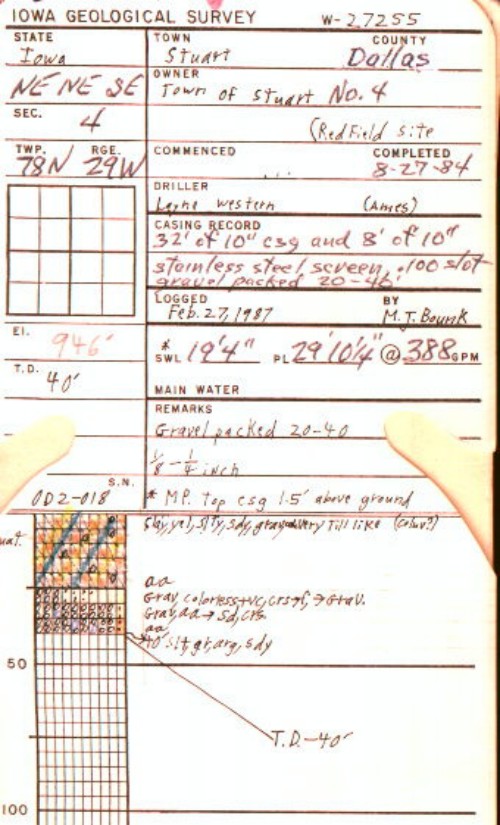 IOWA GEOLOGICAL SURVEY W-27255
STATE
Iowa
TOWN COUNTY
Stuart Dallas
NE NE SE
OWNER
Town of Stuart No. 4
SEC.
4
(Redfield site
TWP. RGE.
78N 29W
COMMENCED COMPLETED
8-27-84
DRILLER
Layne Western (Ames)
CASING RECORD
32' of 10" csg and 8' of 10"
stainless steel screen, .100 slot
gravel packed 20-40'
LOGGED BY
Feb. 27, 1987 M.J. Bounk
El. 946'
* SWL 19'4" PL 29'10'4" @ 388 GPM
T.D.
40'
MAIN WATER
REMARKS
Gravel packed 20-40
1/8 - 1/4 inch
S.N.
OD2-018
* M.P. top csg 1.5' above ground
yel, slty, sdy, very till like (coluv?)
aa
Grav, colorless+vc, crs→f, → Grav.
Grav, aa → sd, crs.
aa
40' slt, gr, arg, sdy
50
T.D.-40'
100